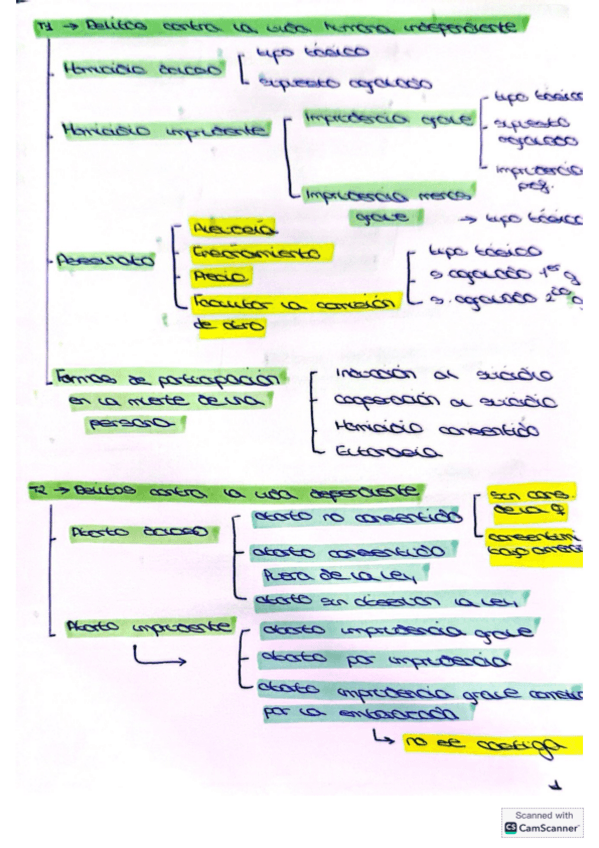 T1 → Delitos contra la vida humana independiente
Homicidio doloso
tipo básico
supuesto agravado
Homicidio imprudente
Imprudencia grave
tipo básico
supuesto
agravado
imprudencia
prof.
Imprudencia menos
grave
→ tipo básico
Asesinato
Alevosía
Ensañamiento
Precio
Facilitar la comisión
de otro
tipo básico
s. agravado 1er g
s. agravado 2do g
Formas de participación
en la muerte de una
persona
Inducción al suicidio
cooperación al suicidio
Homicidio consentido
Eutanasia
T2 → Delitos contra la vida dependiente
Aborto doloso
aborto no consentido
sin cons.
de la ♀
consentimi
bajo
aborto consentido
fuera de la ley
aborto sin observar la ley
Aborto imprudente
aborto imprudencia grave
aborto por imprudencia
aborto imprudencia grave
por la embarazada
↳ no se castiga
1
Scanned with
CS CamScanner